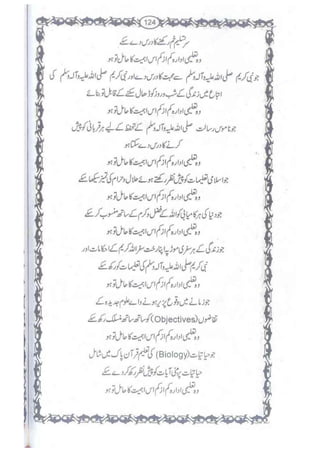 124
سرِ تسلیم خم رکھنے کا درس دے سکے
وہ تعلیمی ادارہ کم از کم اس اہمیت کا حامل تو ہو
جو نبی کریم صلی اللہ علیہ وآلہ وسلم سے محبت کا درس دے اور نبی کریم صلی اللہ علیہ وآلہ وسلم کی
اتباع میں زندگی کے شب و روز کو ڈھال سکنے کے قابل تو بنائے
وہ تعلیمی ادارہ کم از کم اس اہمیت کا حامل تو ہو
جو ناموس رسالت صلی اللہ علیہ وآلہ وسلم کے تحفظ کے لیے ہر قربانی کو پیش
کرنے کا درس دے سکتا ہو
وہ تعلیمی ادارہ کم از کم اس اہمیت کا حامل تو ہو
جو اسلامی تعلیمات کو پیش نظر رکھتے ہوئے حلال و حرام کی تمیز سکھا سکے
وہ تعلیمی ادارہ کم از کم اس اہمیت کا حامل تو ہو
جو دنیا کی ہر کامیابی کو اللہ کے فضل و کرم کے ساتھ منسوب کر سکے
وہ تعلیمی ادارہ کم از کم اس اہمیت کا حامل تو ہو
جو زندگی کے ہر سفری موڑ پر اپنا رخت سفر اللہ کریم کے احکامات اور
نبی کریم صلی اللہ علیہ وآلہ وسلم کی تعلیمات کو رکھ سکے
وہ تعلیمی ادارہ کم از کم اس اہمیت کا حامل تو ہو
جو زمانے میں وقوع پزیر ہونے والے علوم جدیدہ کے
تقاضوں (Objectives) کو ساتھ ساتھ منسلک رکھ سکے
وہ تعلیمی ادارہ کم از کم اس اہمیت کا حامل تو ہو
جو حیاتیات (Biology) کی تعلیم قرآن پاک میں شامل
حیاتیات پر مبنی آیات کو پیش نظر رکھ کر دے سکے
وہ تعلیمی ادارہ کم از کم اس اہمیت کا حامل تو ہو